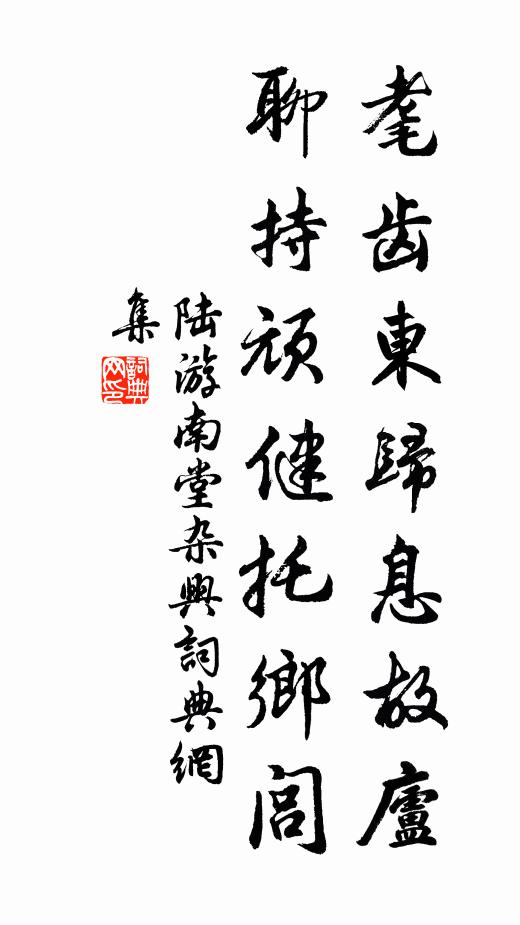 耄齿東歸息故廬
聊持頑健托鄉閭
陆游南堂杂興詞典網
集
詞典网印